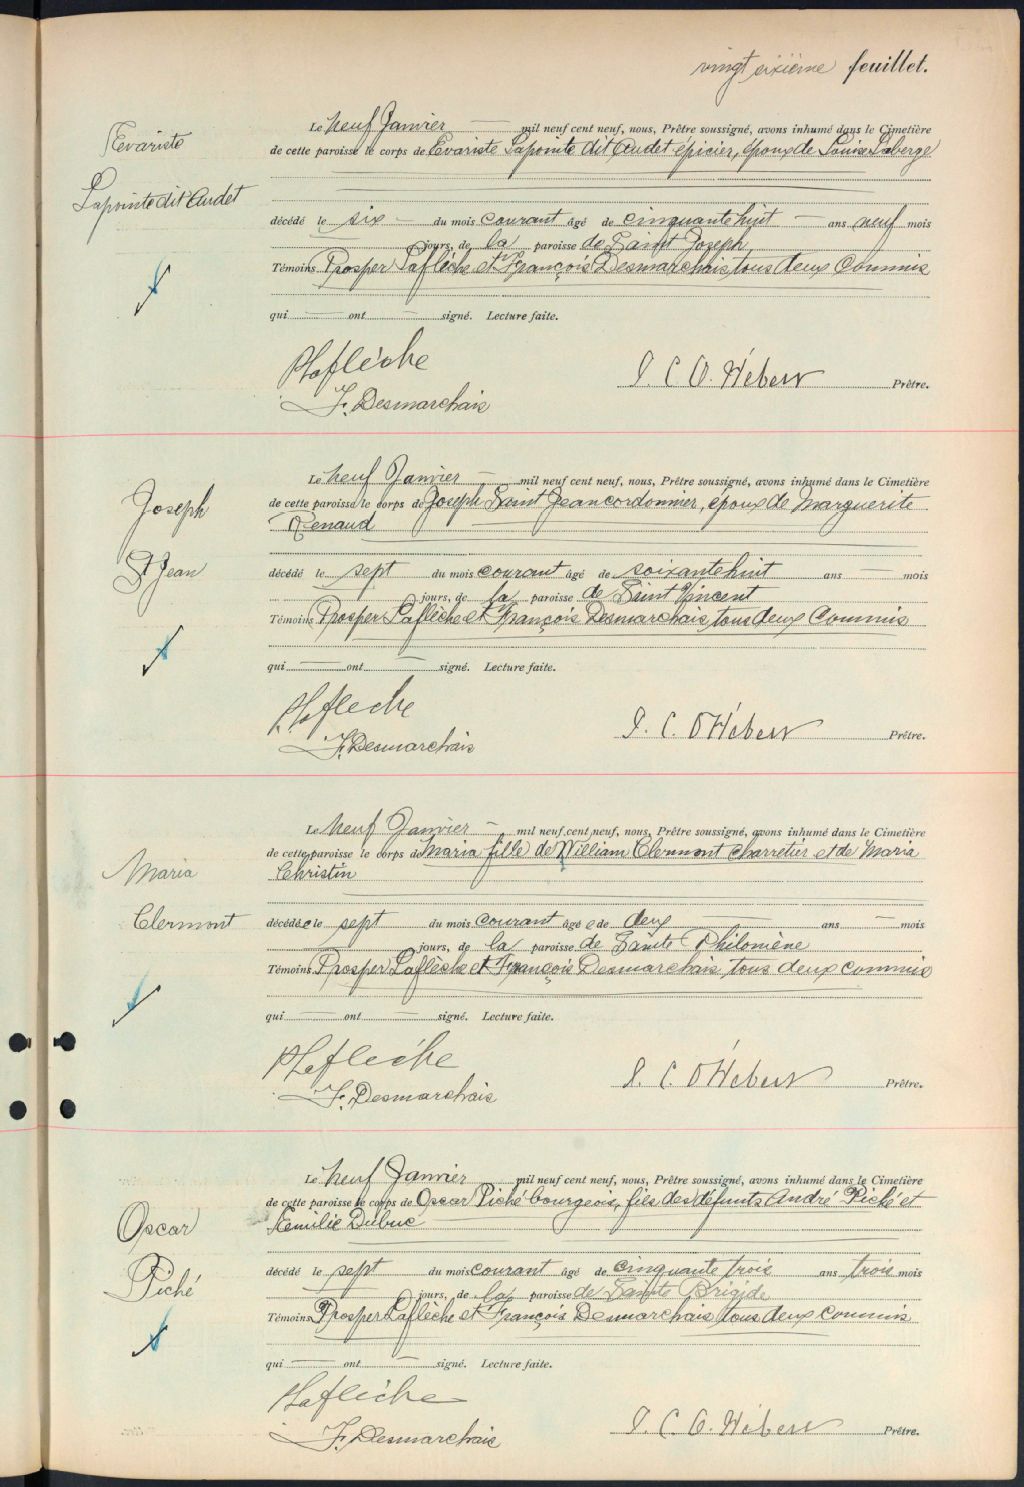 vingt sixième feuillet.
Evariste
Lapointe dit Audet
Le neuf Janvier — mil neuf cent neuf, nous, Prêtre soussigné, avons inhumé dans le Cimetière
de cette paroisse le corps de Evariste Lapointe dit Audet épicier, époux de Louise Laberge
décédé le six — du mois courant âgé de cinquante huit — ans neuf mois
jours, de la paroisse de Saint Joseph
Témoins Prosper Laflèche et François Desmarchais, tous deux Commis
qui — ont — signé. Lecture faite.
PLaflèche
F. Desmarchais
Prêtre.
Joseph
St Jean
Le neuf Janvier — mil neuf cent neuf, nous, Prêtre soussigné, avons inhumé dans le Cimetière
de cette paroisse le corps de Joseph Saint Jean cordonnier, époux de Marguerite
Renaud
décédé le sept du mois courant âgé de soixante huit ans — mois
jours, de la paroisse de Saint Vincent
Témoins Prosper Laflèche et François Desmarchais, tous deux Commis
qui — ont — signé. Lecture faite.
PLafleche
F. Desmarchais
Prêtre.
Maria
Clermont
Le neuf Janvier — mil neuf cent neuf, nous, Prêtre soussigné, avons inhumé dans le Cimetière
de cette paroisse le corps de Maria fille de William Clermont charretier et de Maria
Christin
décédée le sept du mois courant âgée de deux — ans — mois
jours, de la paroisse de Sainte Philomène
Témoins Prosper Laflèche et François Desmarchais tous deux commis
qui — ont — signé. Lecture faite.
PLafléche
F. Desmarchais
Prêtre.
Oscar
Piché
Le neuf Janvier mil neuf cent neuf, nous, Prêtre soussigné, avons inhumé dans le Cimetière
de cette paroisse le corps de Oscar Piché bourgeois, fils des défunts André Piché et
Emilie Dubuc
décédé le sept du mois courant âgé de cinquante trois ans trois mois
jours, de la paroisse de Sainte Brigide
Témoins Prosper Laflèche et François Desmarchais tous deux commis
qui — ont — signé. Lecture faite.
PLaflèche
F. Desmarchais
Prêtre.